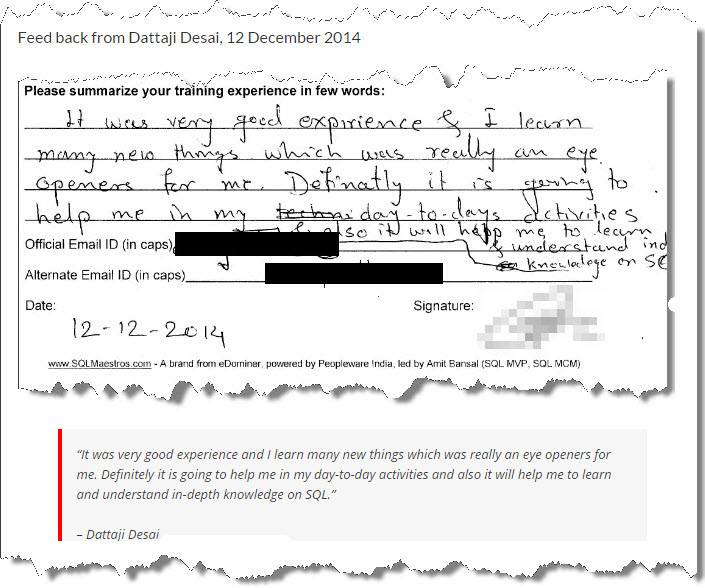 Feed back from Dattaji Desai, 12 December 2014
Please summarize your training experience in few words:
It was very good expirience & I learn
many new things which was really an eye
openers for me. Definatly it is going to
help me in my day-to-days activities
& also it will help me to learn
Official Email ID (in caps)
& understand ind
knowladge on SQ
Alternate Email ID (in caps)
Date:
Signature:
12-12-2014
www.SQLMaestros.com - A brand from eDominer, powered by Peopleware India, led by Amit Bansal (SQL MVP, SQL MCM)
“It was very good experience and I learn many new things which was really an eye openers for
me. Definitely it is going to help me in my day-to-day activities and also it will help me to learn
and understand in-depth knowledge on SQL.”
– Dattaji Desai